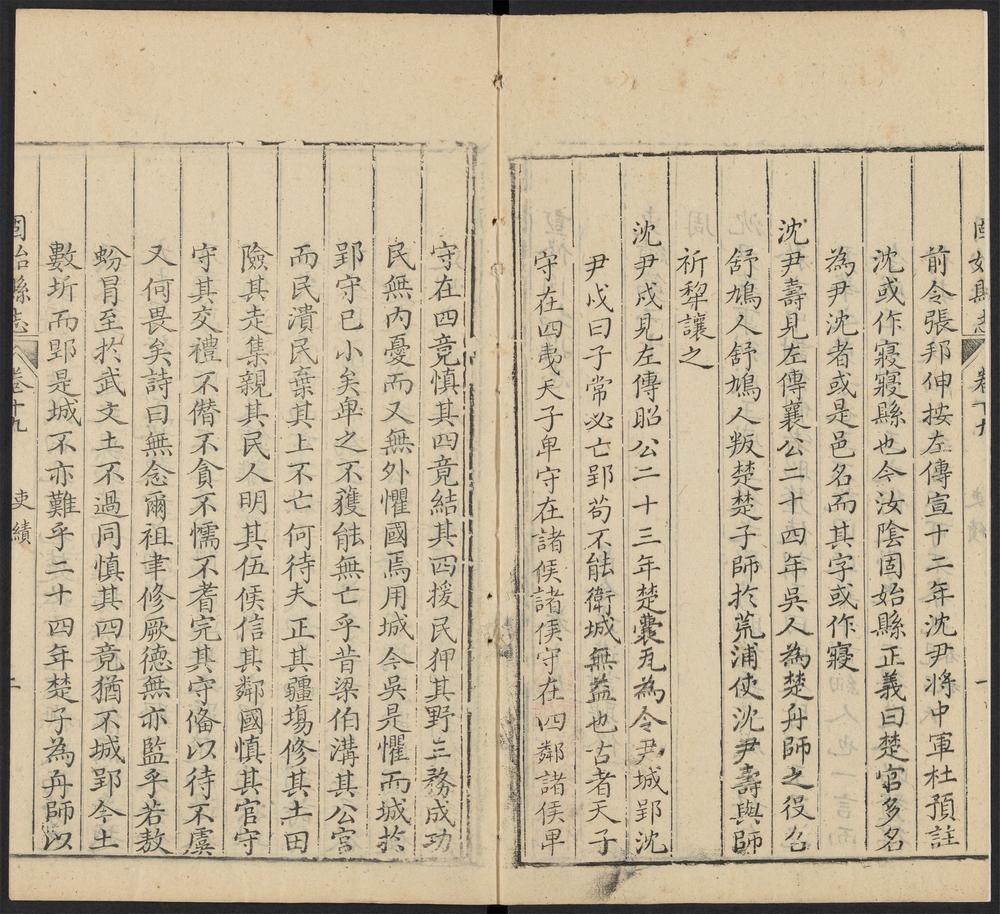 固始縣志 卷十九 吏績 一
前令張邦伸按左傳宣十二年沈尹將中軍杜預註
沈或作寢寢縣也今汝陰固始縣正義曰楚官多名
為尹沈者或是邑名而其字或作寢
沈尹壽見左傳襄公二十四年吳人為楚舟師之役召
舒鳩人舒鳩人叛楚楚子師於荒浦使沈尹壽與師
祈犂讓之
沈尹戌見左傳昭公二十三年楚囊瓦為令尹城郢沈
尹戌曰子常必亡郢苟不能衛城無益也古者天子
守在四夷天子卑守在諸侯諸侯守在四鄰諸侯卑
守在四竟慎其四竟結其四援民狎其野三務成功
民無內憂而又無外懼國焉用城今吳是懼而城於
郢守已小矣卑之不獲能無亡乎昔梁伯溝其公宮
而民潰民棄其上不亡何待夫正其疆埸修其土田
險其走集親其民人明其伍候信其鄰國慎其官守
守其交禮不僭不貪不懦不耆完其守備以待不虞
又何畏矣詩曰無念爾祖聿修厥德無亦監乎若敖
蚡冒至於武文土不過同慎其四竟猶不城郢今土
數圻而郢是城不亦難乎二十四年楚子為舟師以
固始縣志 卷十九 吏績 二